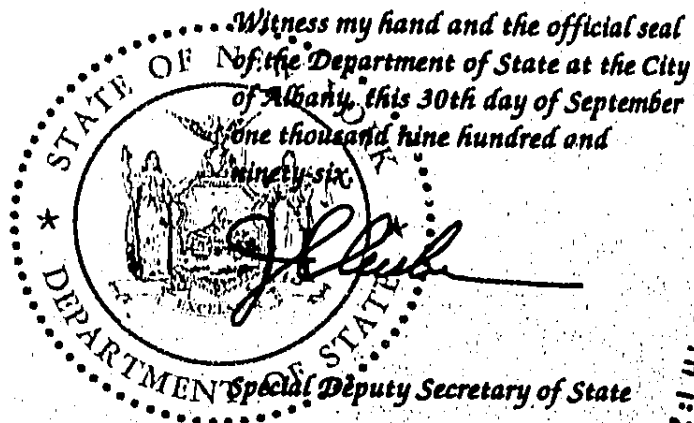 Witness my hand and the official seal
of the Department of State at the City
of Albany, this 30th day of September
one thousand nine hundred and
ninety-six.
STATE OF NEW YORK
DEPARTMENT OF STATE
Special Deputy Secretary of State